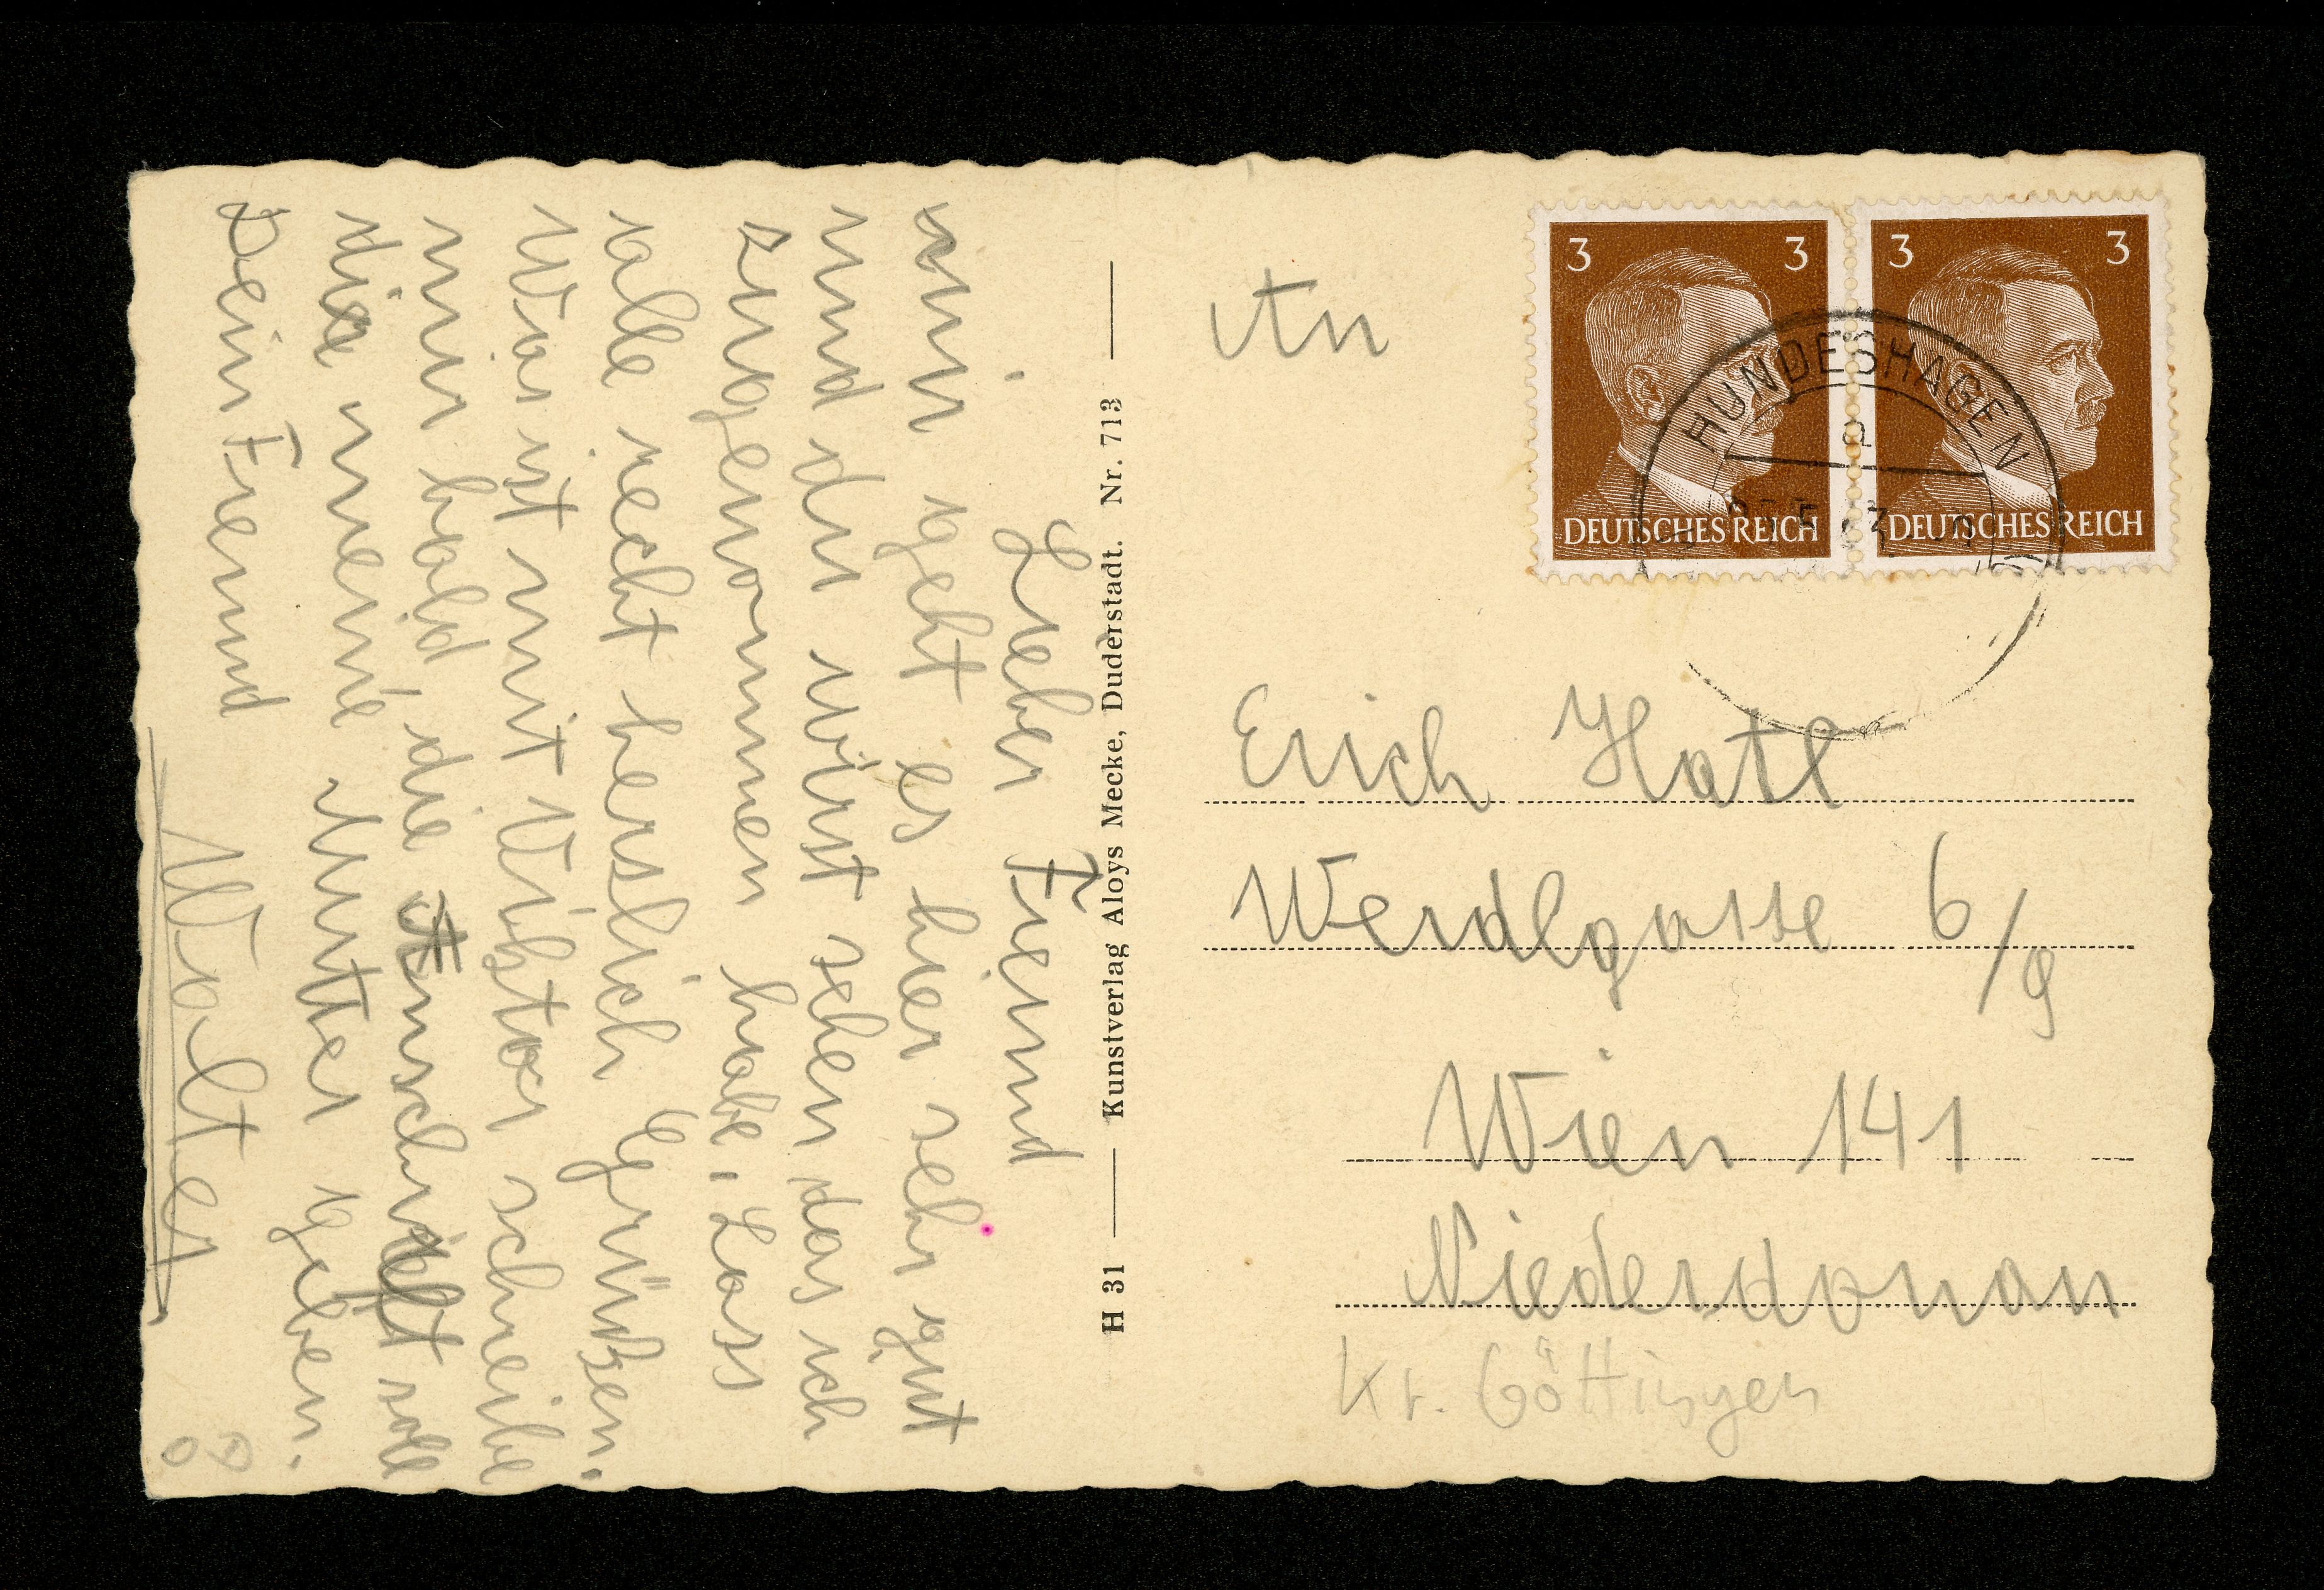 Lieber Freund
mir geht es hier sehr gut
und du wirst sehen das ich
zugenommen habe. Lass
alle recht herslich Grüßen.
Was ist mit Viktor schreibe
mir bald die Anschrift soll
die meine Mutter geben.
Dein Freund
Walter
H 31 — Kunstverlag Aloys Mecke, Duderstadt. Nr. 713 —
3 3
DEUTSCHES REICH
3 3
DEUTSCHES REICH
HUNDESHAGEN
An
Erich Hatl
Werdlgasse 6/9
Wien 141
Niederdonau
Kr. Göttingen